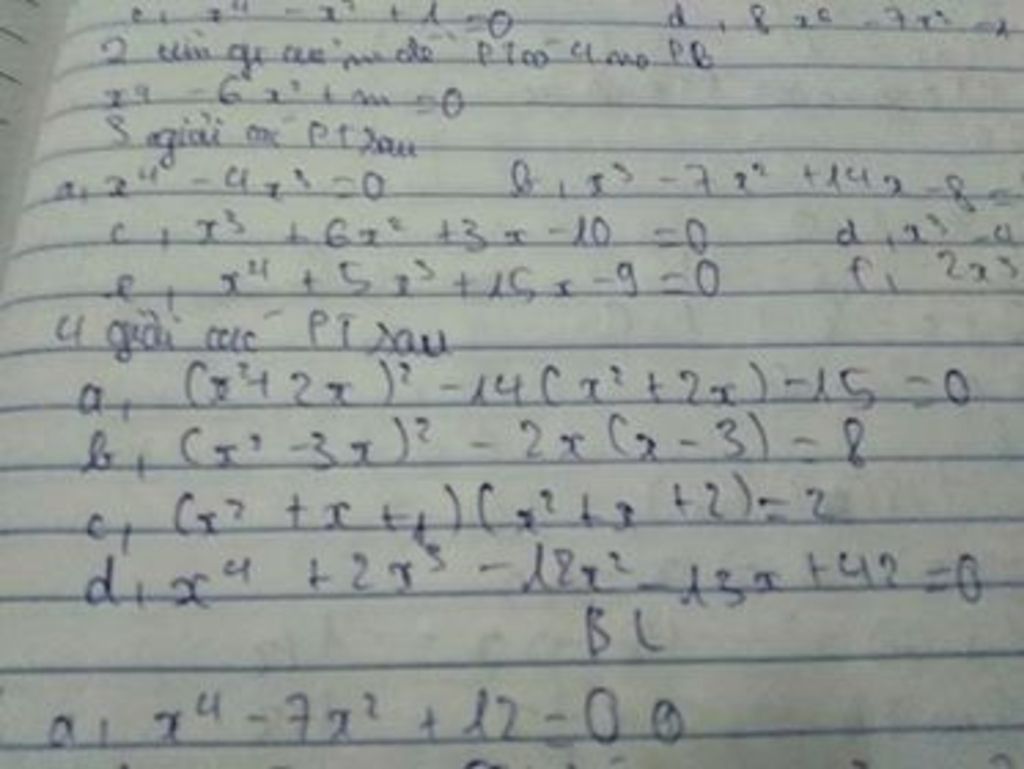 c, x⁴ - x² + 1 = 0 d, 8x⁴ - 7x² - 1
2 để PT có 4 no PB
x⁴ - 6x² + m = 0
3 giải các PT sau
a, x⁴ - 4x³ = 0 b, x³ - 7x² + 14x - 8 =
c, x³ + 6x² + 3x - 10 = 0 d, x³ - 4
e, x⁴ + 5x³ + 15x - 9 = 0 f, 2x³
4 giải các PT sau
a, (x² + 2x)² - 14(x² + 2x) - 15 = 0
b, (x² - 3x)² - 2x(x - 3) = 8
c, (x² + x + 1)(x² + x + 2) = 2
d, x⁴ + 2x³ - 12x² - 13x + 42 = 0
BL
a, x⁴ - 7x² + 12 = 0 0